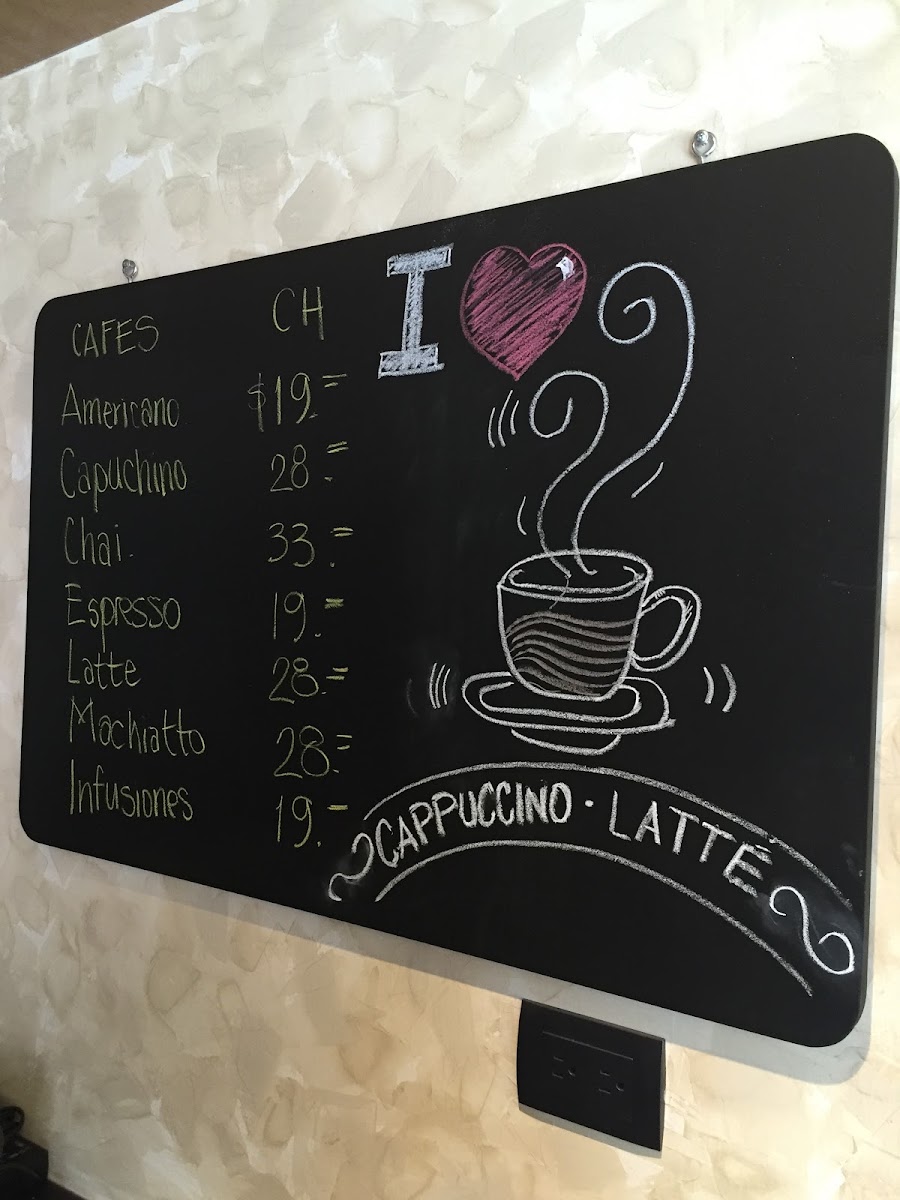 CAFES CH
Americano $19.=
Capuchino 28.=
Chai. 33.=
Espresso 19.=
Latte 28.=
Machiatto 28.=
Infusiones 19.-
I
CAPPUCCINO · LATTÉ